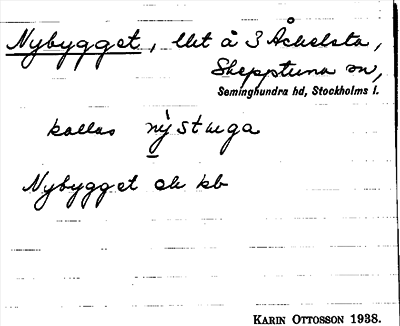 Nybygget, llet å 3 Åckelsta,
Skepptuna sn,
Seminghundra hd, Stockholms l.
kallas nýstuga
Nybygget ek kb
KARIN OTTOSSON 1938.